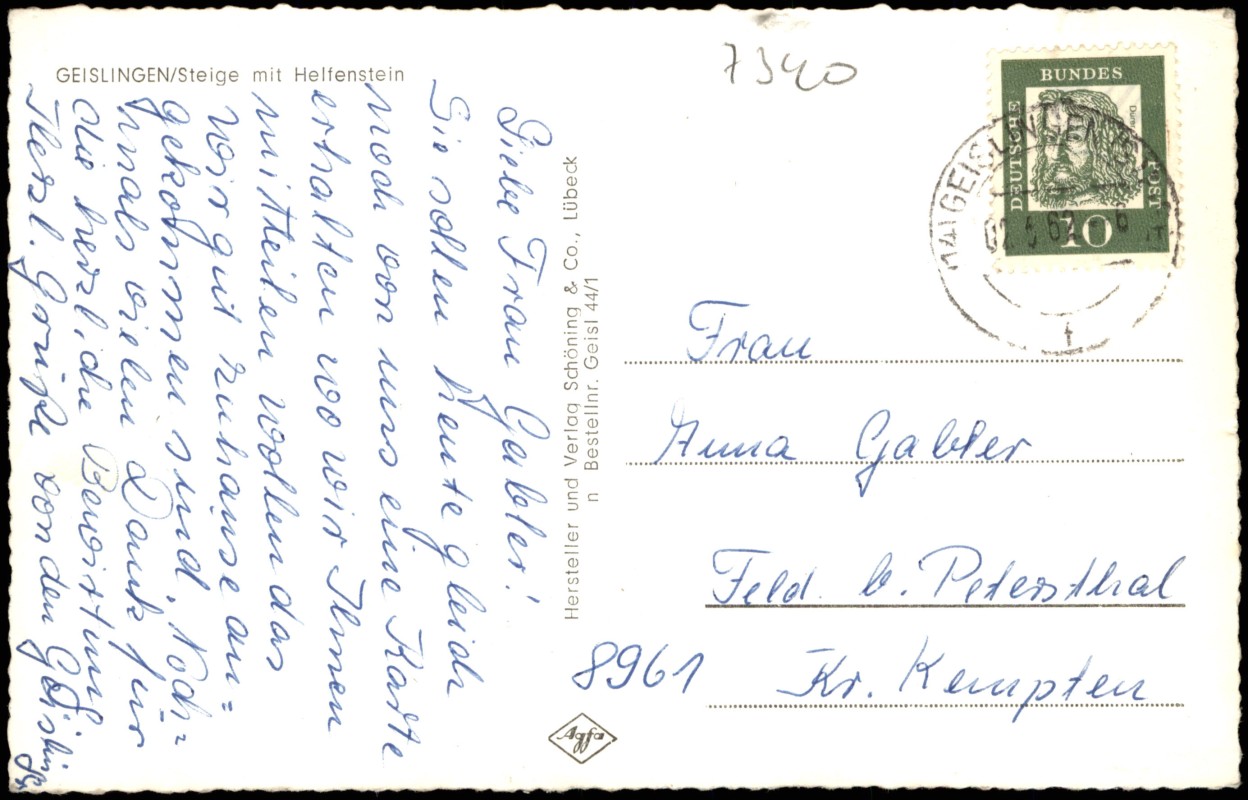 GEISLINGEN/Steige mit Helfenstein
Liebe Frau Gabler!
Sie sollen heute gleich
noch von uns eine Karte
erhalten wo wir Ihnen
mitteilen wollen das
wir gut zuhause an=
gekommen sind. Noch=
mals vielen Dank für
die herzliche Bewirtung
Herzl. Grüße von den Geisling
Hersteller und Verlag Schöning & Co., Lübeck
n Bestellnr. Geisl 44/1
7340
DEUTSCHE BUNDES POST
Dürer
10
GEISLINGEN
Frau
Anna Gabler
Feld b. Petersthal
8961 Kr. Kempten
Agfa